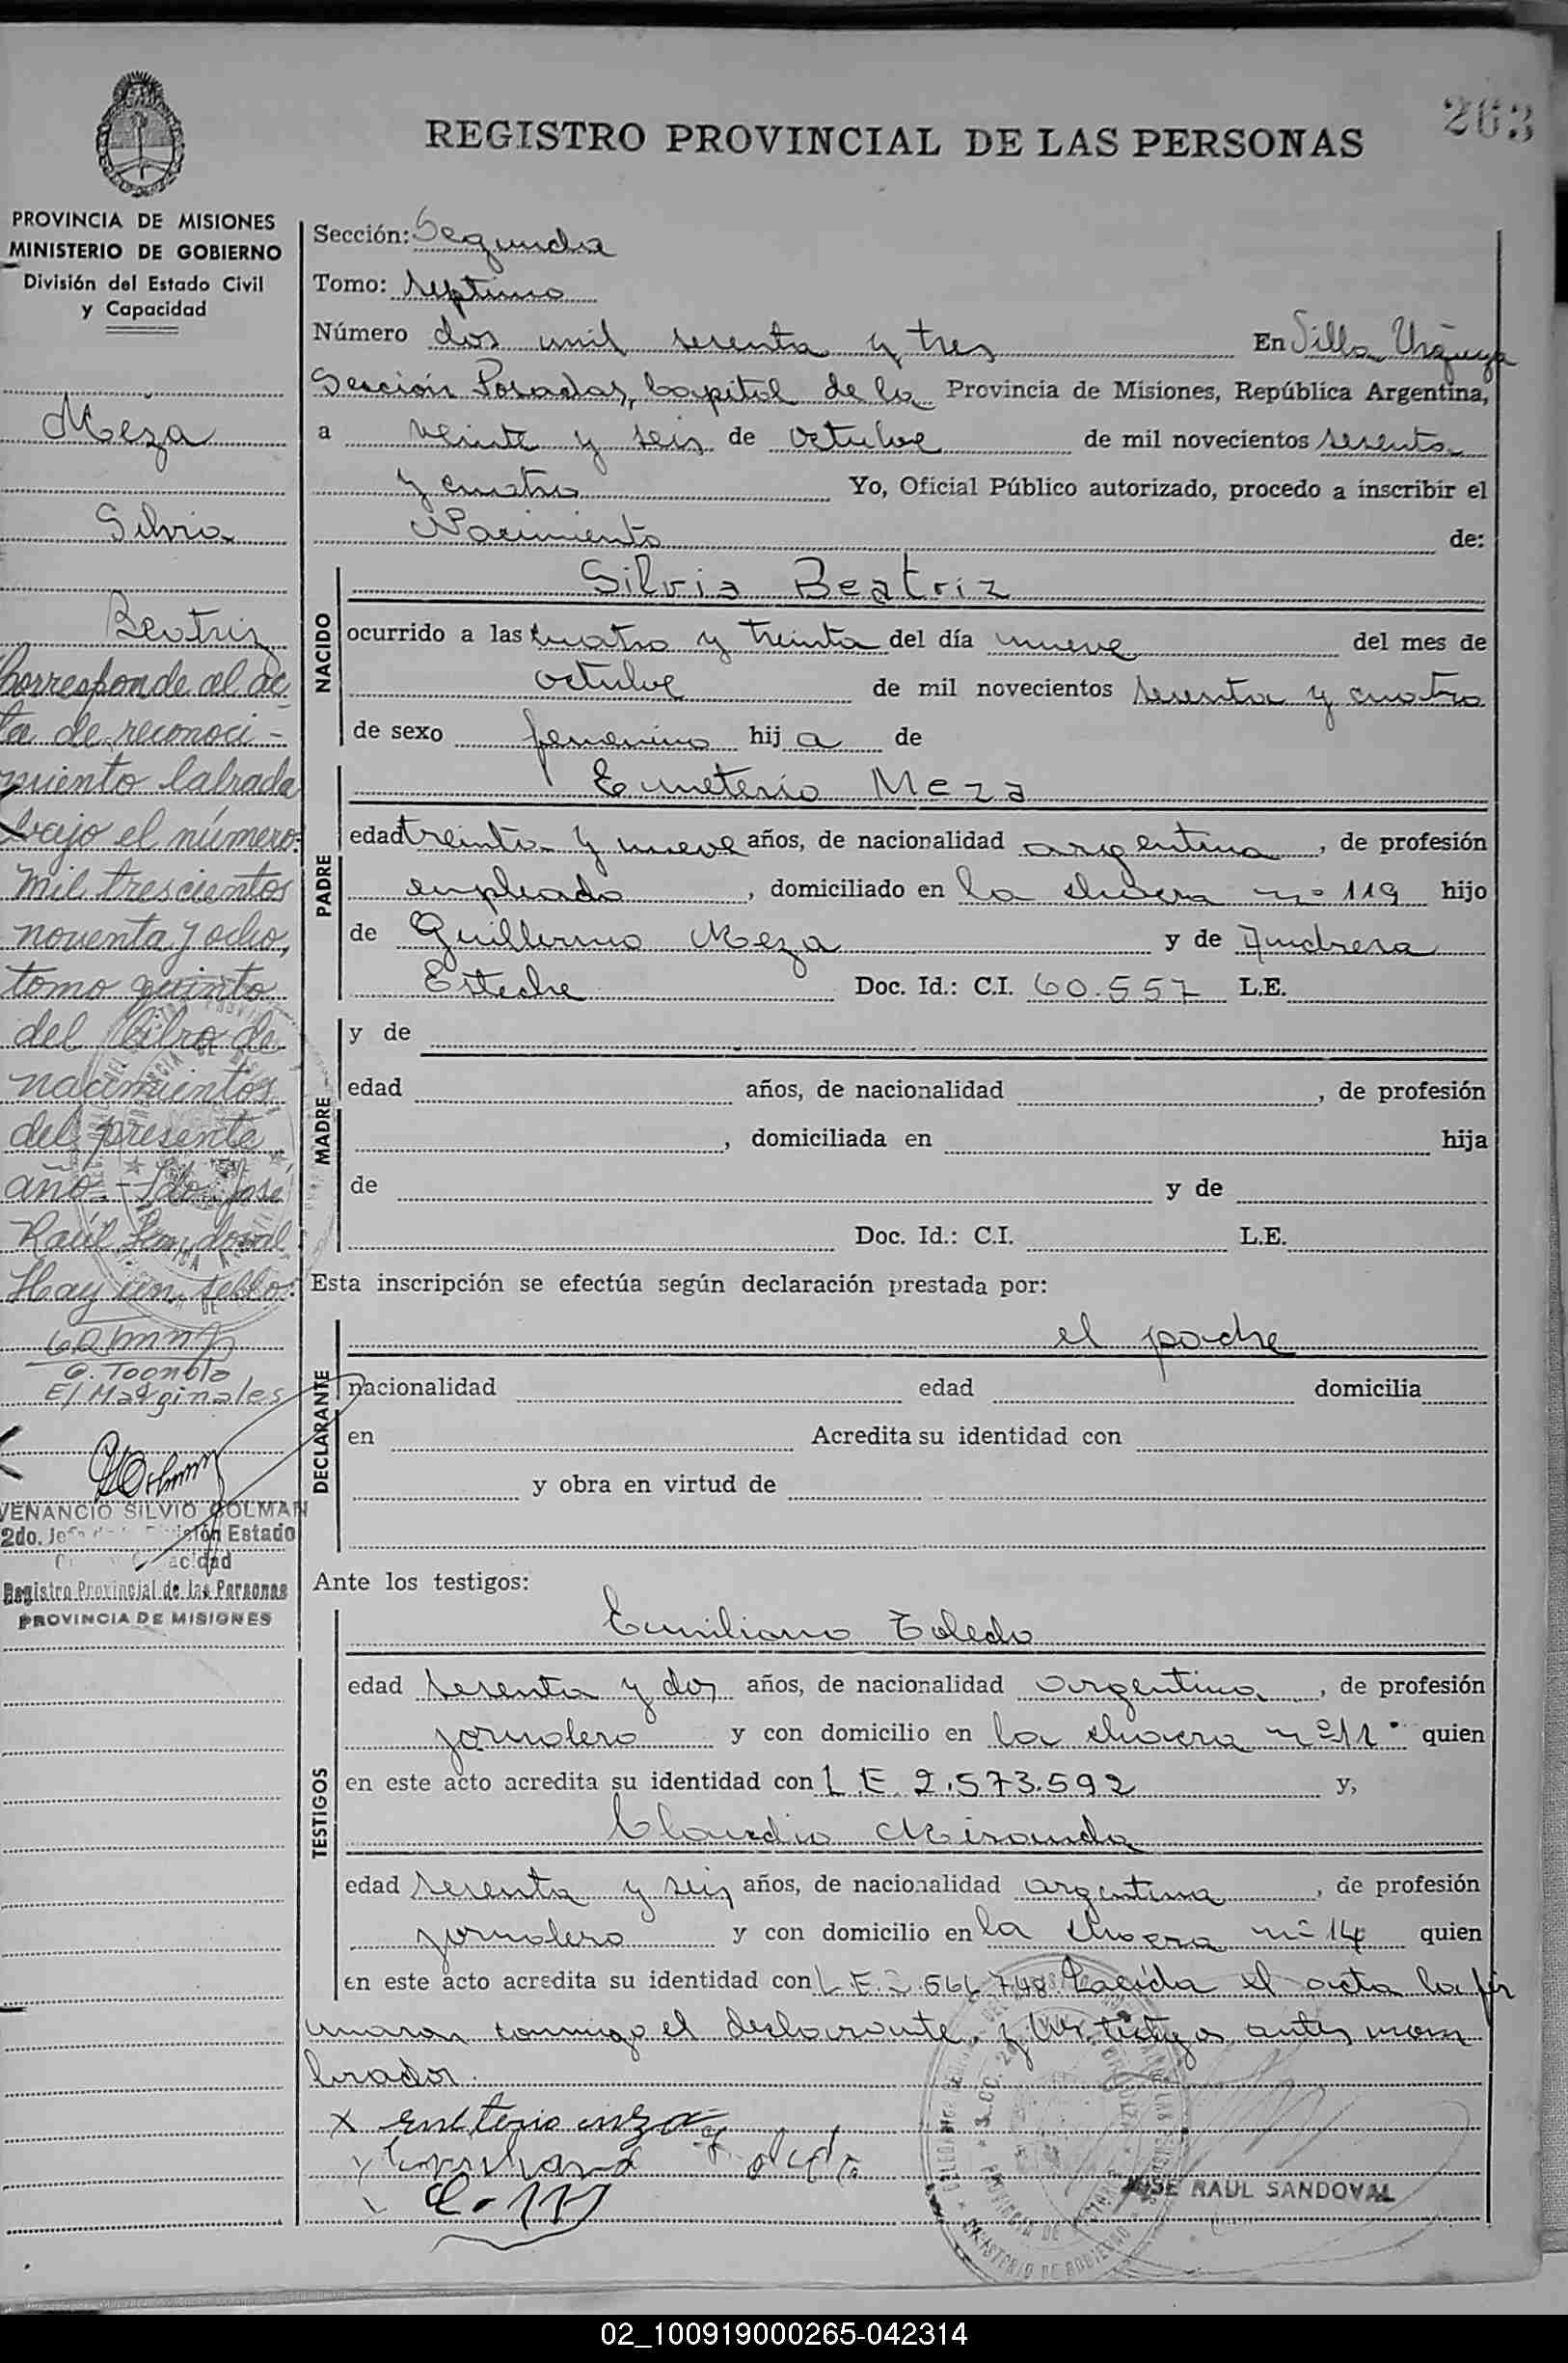 263
REGISTRO PROVINCIAL DE LAS PERSONAS
PROVINCIA DE MISIONES
MINISTERIO DE GOBIERNO
División del Estado Civil
y Capacidad
Meza
Silvia
Beatriz
Corresponde al ac-
ta de reconoci-
miento labrada
bajo el número:
mil trescientos
noventa y ocho,
tomo quinto
del libro de
nacimientos
del presente
año.- Fdo. José
Raúl Sandoval
Hay un sello:
E/Marginales
VENANCIO SILVIO GOLMAN
2do. Jefe de la División Estado
Registro Provincial de las Personas
PROVINCIA DE MISIONES
Sección: Segunda
Tomo: septimo
Número dos mil sesenta y tres En Villa Urquiza
Sección Posadas, Capital de la Provincia de Misiones, República Argentina,
a veinte y seis de octubre de mil novecientos sesenta
y cuatro Yo, Oficial Público autorizado, procedo a inscribir el
Nacimiento de:
NACIDO
Silvia Beatriz
ocurrido a las cuatro y treinta del día nueve del mes de
octubre de mil novecientos sesenta y cuatro
de sexo femenino hija de
PADRE
Emeterio Meza
edad treinta y nueve años, de nacionalidad argentina, de profesión
empleado, domiciliado en la chacra nº 119 hijo
de Guillermo Meza y de Andresa
Esteche Doc. Id.: C.I. 60.557 L.E.
MADRE
y de
edad años, de nacionalidad , de profesión
, domiciliada en hija
de y de
Doc. Id.: C.I. L.E.
Esta inscripción se efectúa según declaración prestada por:
DECLARANTE
el padre
nacionalidad edad domicilia
en Acredita su identidad con
y obra en virtud de
Ante los testigos:
TESTIGOS
Emiliano Toledo
edad sesenta y dos años, de nacionalidad argentina, de profesión
jornalero y con domicilio en la chacra nº 11 quien
en este acto acredita su identidad con L.E. 2.573.592 y,
Claudio Miranda
edad sesenta y seis años, de nacionalidad argentina, de profesión
jornalero y con domicilio en la chacra nº 14 quien
en este acto acredita su identidad con L.E. Laeida el acta la fir
maron conmigo el declarante y los testigos antes nom
brados.
x emeterio meza
JOSE RAUL SANDOVAL
02_100919000265-042314